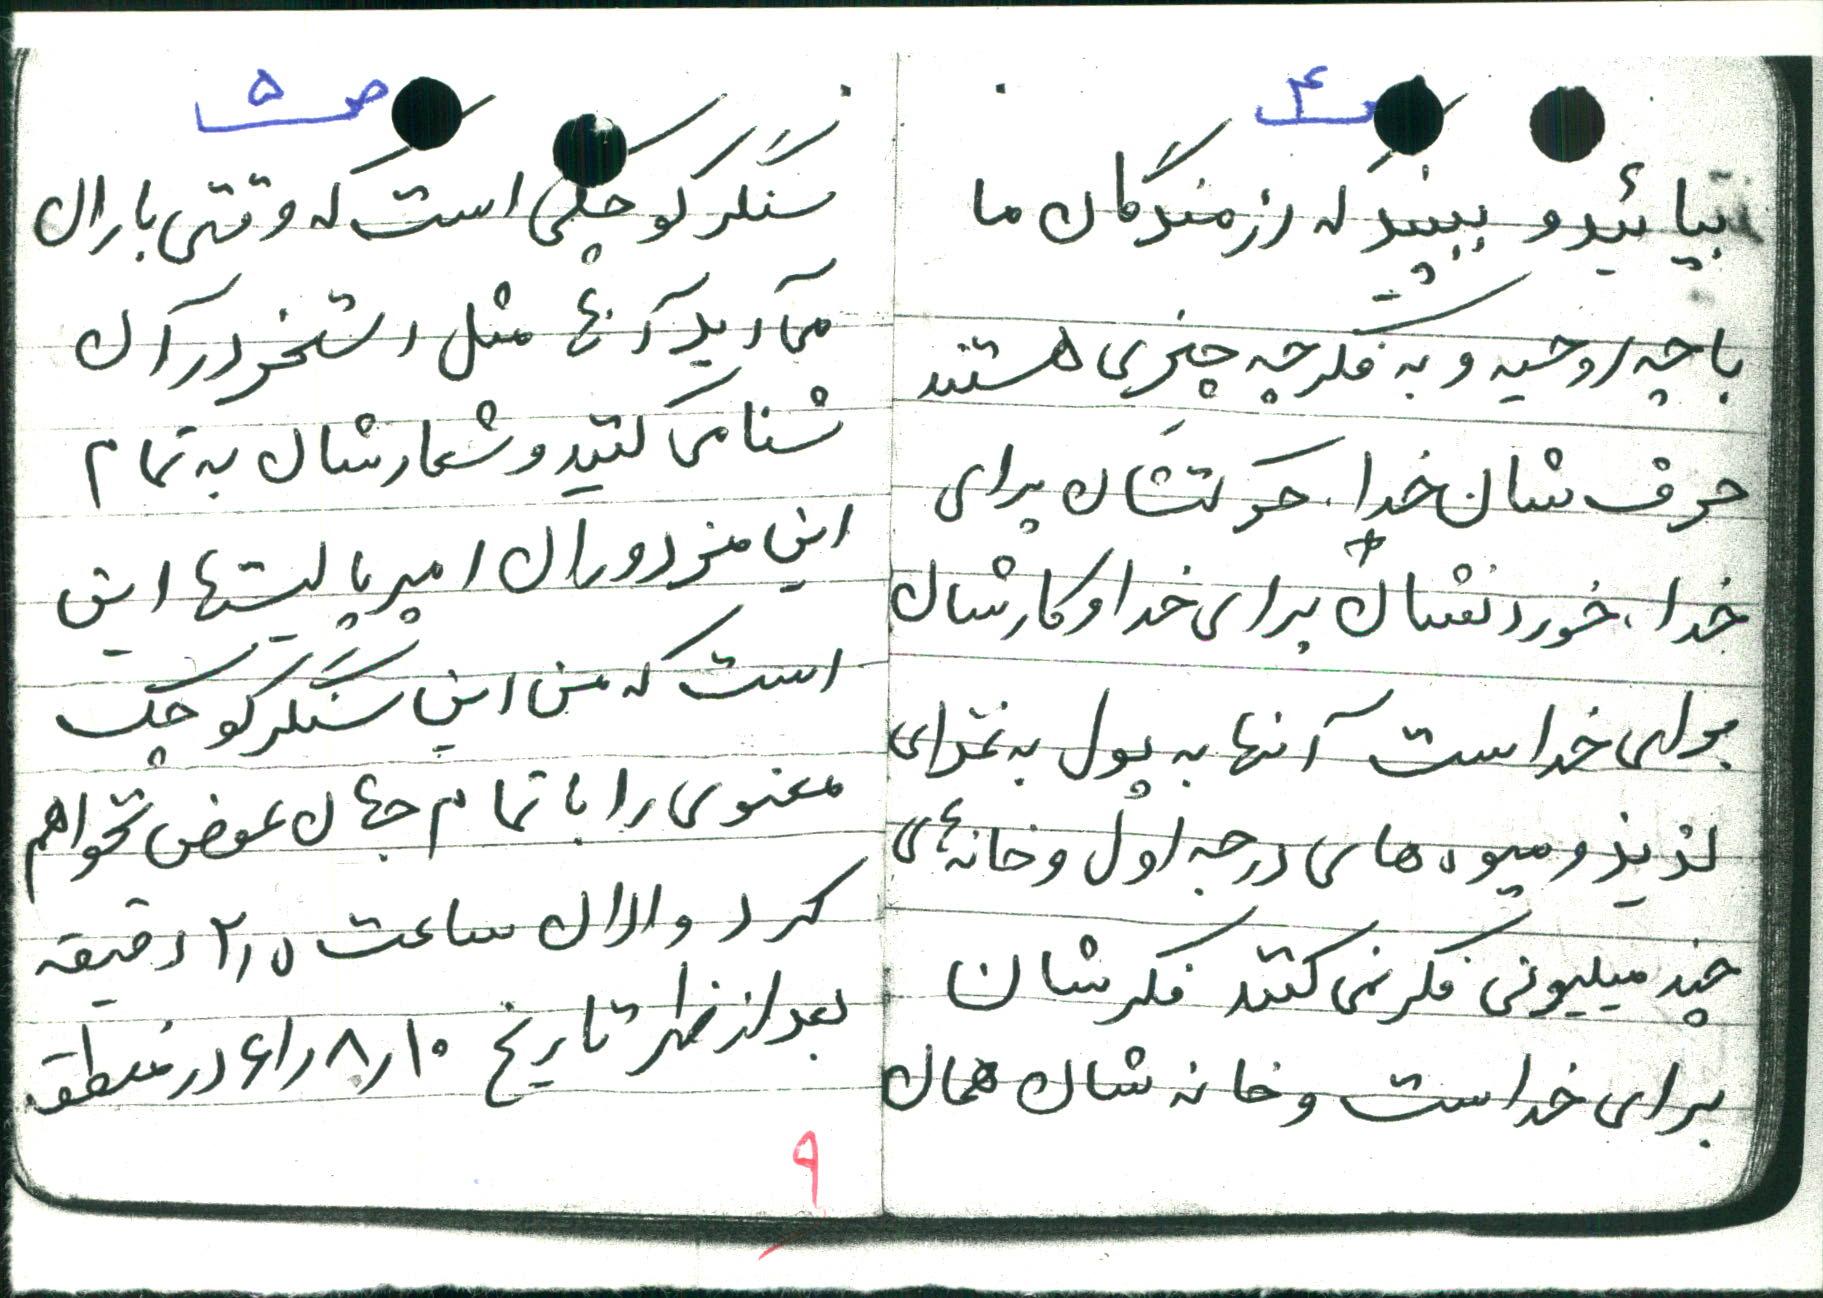 ص ۴
بیائید و ببینید که رزمندگان ما
با چه روحیه و به فکر چه چیزی هستند
حرف شان خدا، حرکتشان برای
خدا، خوردنشان برای خدا و کارشان
برای خداست آنها به پول به غذای
لذیذ و میوه های درجه اول و خانه‌ی
چند میلیونی فکر نمی کنند فکر شان
برای خداست و خانه شان همان
ص ۵
سنگر کوچکی است که وقتی باران
می آید آنها مثل استخر در آن
شنا می کنند و شعارشان به تمام
این مزدوران امپریالیستها این
است که من این سنگر کوچک
معنوی را با تمام جهان عوض نخواهم
کرد و الان ساعت ۲٫۵ دقیقه
بعد از ظهر تاریخ ۱۰ر۸ر۶۱ در منطقه
۹